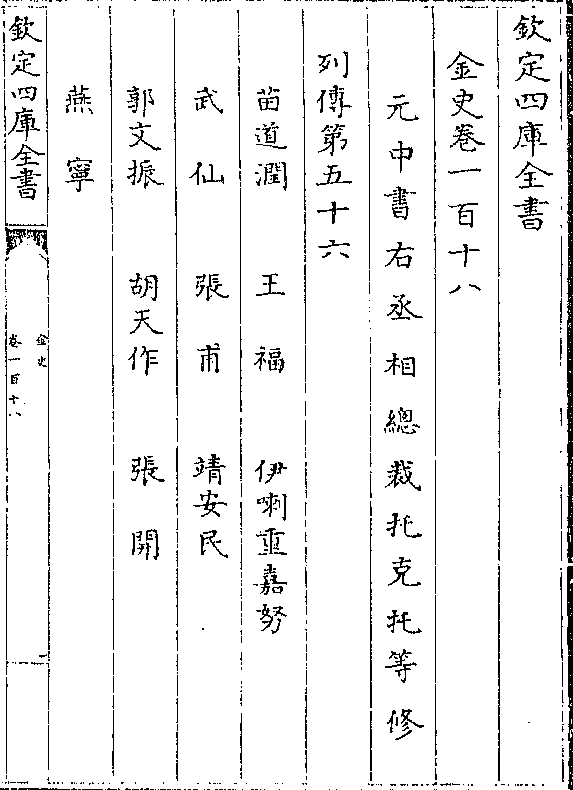 欽定四庫全書
金史卷一百十八
元中書右丞相總裁托克托等修
列傳第五十六
苗道潤 王福 伊喇重嘉努
武仙 張甫 靖安民
郭文振 胡天作 張開
燕寧
欽定四庫全書
金史
卷一百十八
一